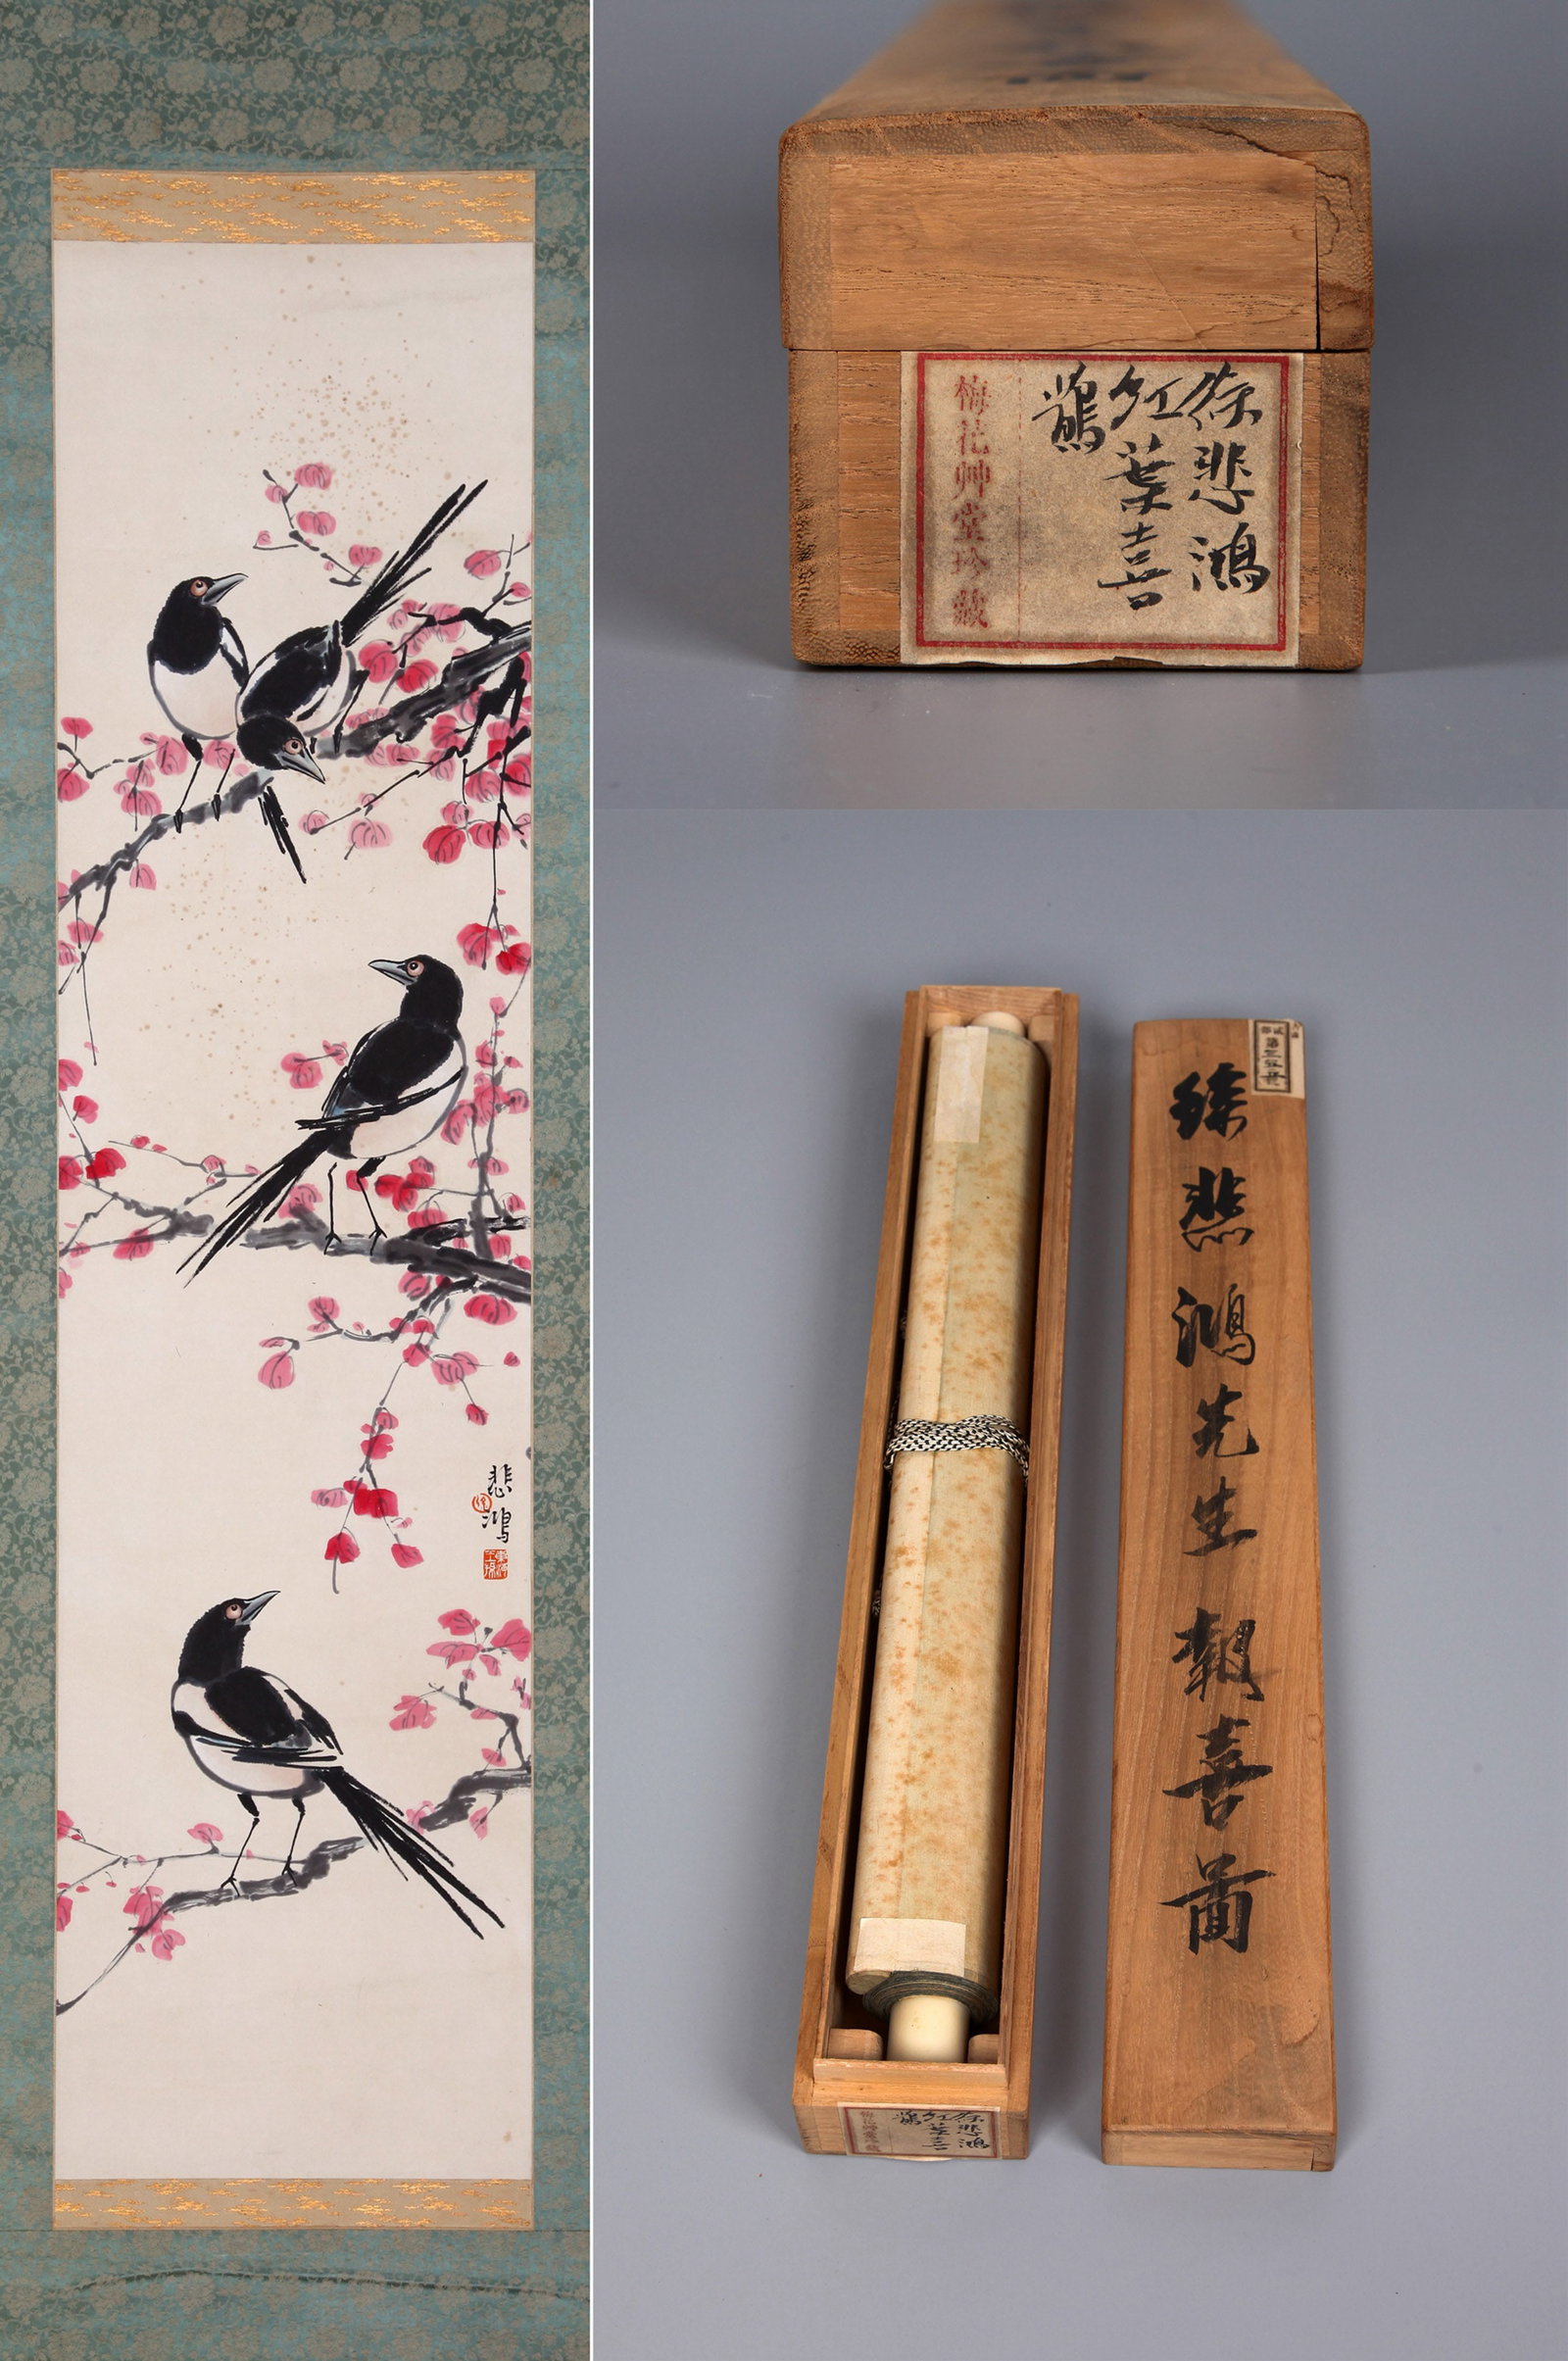 悲鴻
徐悲鴻
紅葉喜
鵲
梅花艸堂珍藏
徐悲鴻先生報喜圖
徐悲鴻
紅葉喜
鵲
梅花艸堂珍藏